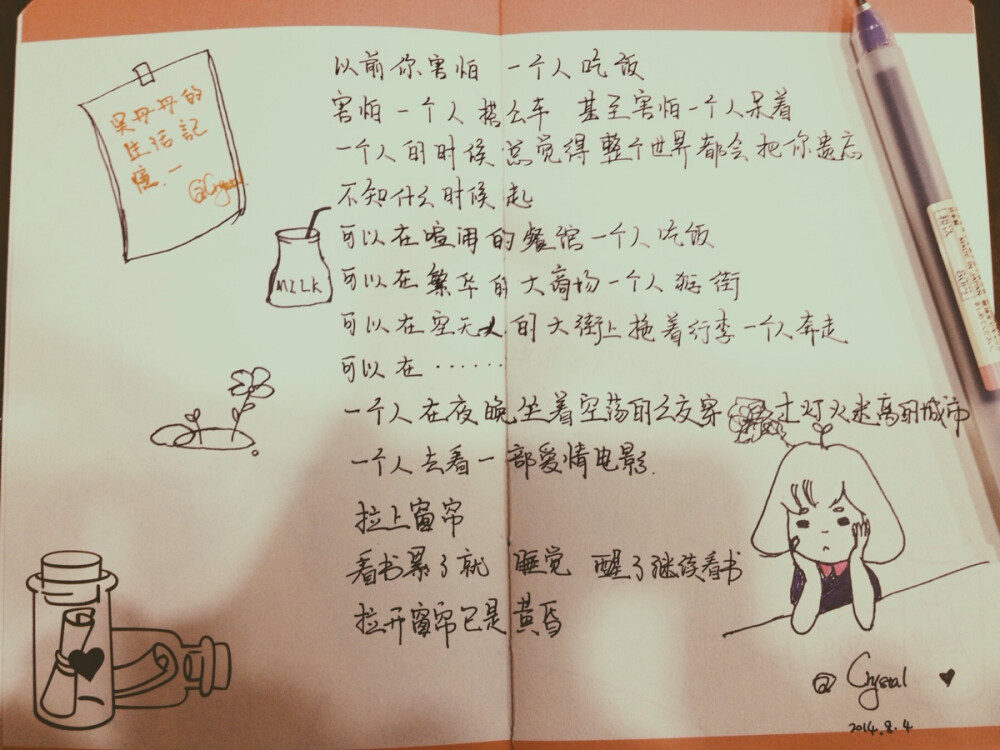 吴丹丹的
生活記
憶.一
@Crystal
以前你害怕 一个人吃饭
害怕一个人搭公车 甚至害怕一个人呆着
一个人的时候总觉得整个世界都会把你遗忘
不知什么时候起
可以在喧闹的餐馆一个人吃饭
MILK
可以在繁华的大商场一个人逛街
可以在空无人的大街上拖着行李一个人奔走
可以在……
一个人在夜晚坐着空荡的公交穿 过灯火迷离的城市
一个人去看一部爱情电影.
拉上窗帘
看书累了就 睡觉 醒了继续看书
拉开窗帘已是黄昏
@ Crystal ♥
2014.8.4